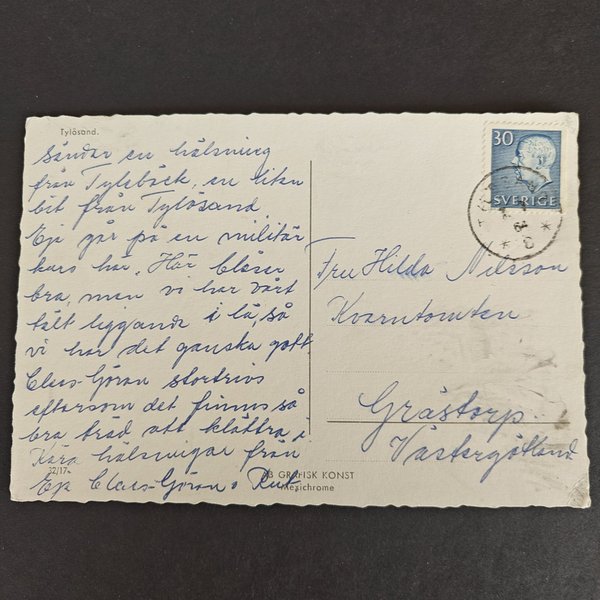 Tylösand.
Sänder en hälsning
från Tylebäck, en liten
bit från Tylösand.
Eje går på en militär
kurs här. Här blåser
bra, men vi har vårt
tält liggande i lä, så
vi har det ganska gott.
Claes-Göran stortrivs
eftersom det finns så
bra träd att klättra i.
Kära hälsningar från
Eje Claes-Göran o Rut.
12/17
AB GRAFISK KONST
Mexichrome
30
SVERIGE
Fru Hilda Nilsson
Kvarntomten
Grästorp.
Västergötland